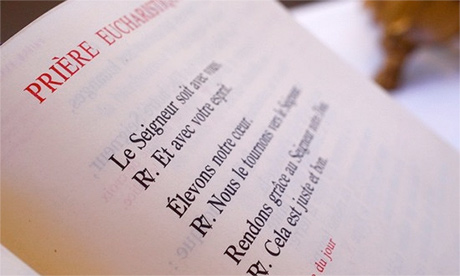 PRIÈRE EUCHARISTIQUE
Le Seigneur soit avec vous.
R/. Et avec votre esprit.
Élevons notre cœur.
R/. Nous le tournons vers le Seigneur.
Rendons grâce au Seigneur notre Dieu.
R/. Cela est juste et bon.
du jour